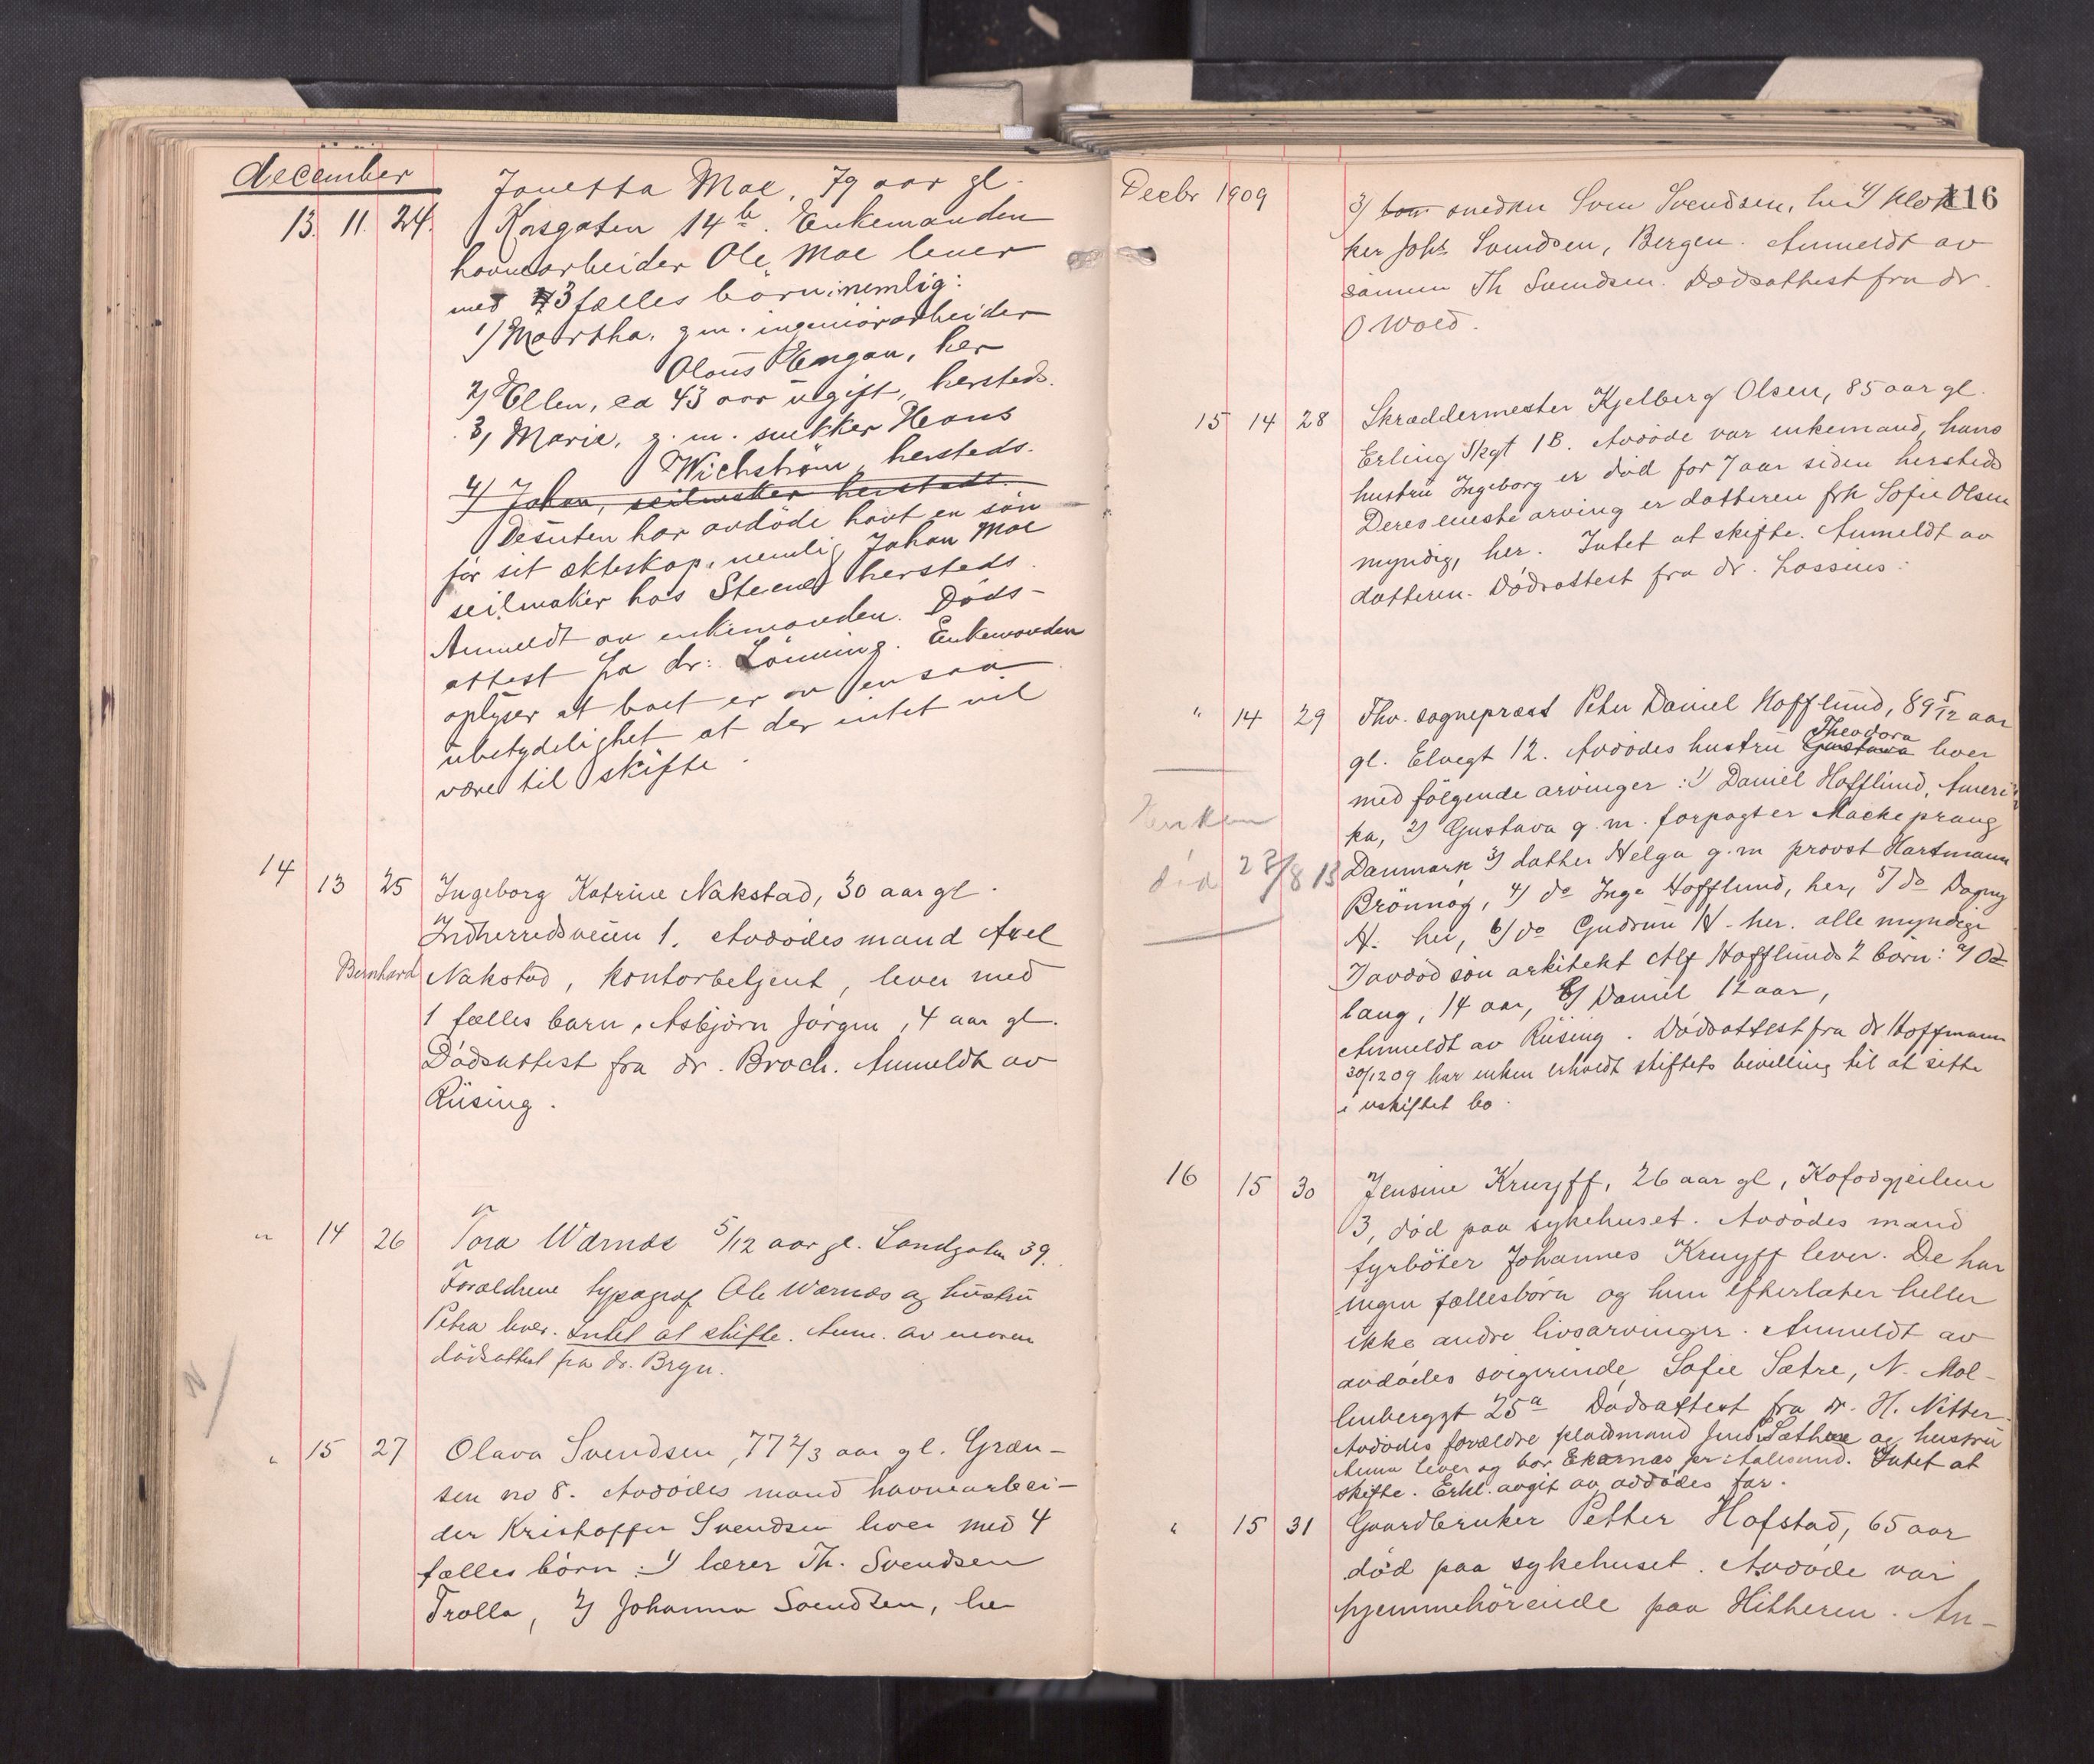 december
13. 11. 24. Jonetta Moe, 79 aar gl.
Korsgaten 14b. Enkemanden
havnearbeider Ole Moe lever
med 3 fælles børn, nemlig:
1) Martha, g.m. ingeniørarbeider
Olaus Hangan, her
2) Ellen, ca 43 aar ugift, hersteds.
3, Marie, g.m. snekker Hans
Wichstrøm, hersteds.
4) Johan, seilmaker hersteds.
Desuten har avdöde havt en sön
för sit ekteskap, nemlig Johan Moe
seilmaker hos Steene hersteds.
Anmeldt av enkemanden. Döds-
attest fra dr. Lönning. Enkemanden
oplyser at boet er av en saa
ubetydelighet at der intet vil
være til skifte.
14 13 25 Ingeborg Katrine Nakstad, 30 aar gl.
Indherredsveien 1. Avdödes mand Axel
Bernhard Nakstad, kontorbetjent, lever med
1 fælles barn, Asbjörn Jörgen, 4 aar gl.
Dödsattest fra dr. Broch. Anmeldt av
Riising.
" 14 26 Tora Wærnæs 5/12 aar gl. Sandgaten 39.
Forældrene typograf Ole Wærnæs og hustru
Petra lever. Intet at skifte. Anm. av moren
dödsattest fra dr. Bryn.
" 15 27 Olava Svendsen, 77 2/3 aar gl. Græn-
sen no 8. Avdödes mand havnearbei-
der Kristoffer Svendsen lever med 4
fælles börn: 1) lærer Th. Svendsen
Trolla, 2) Johanna Svendsen, her
Decbr 1909
116
3) snedker Sven Svendsen, her 4) klok-
ker Johs Svendsen, Bergen. Anmeldt av
sönnen Th Svendsen. Dødsattest fra dr.
O Wold.
15 14 28 Skræddermester Kjelberg Olsen, 85 aar gl.
Erling Skgt 1B. Avdöde var enkemand, hans
hustru Ingeborg er död for 7 aar siden hersteds
Deres eneste arving er datteren frk Sofie Olsen
myndig, her. Intet at skifte. Anmeldt av
datteren. Dödsattest fra dr. Lossius.
" 14 29 Fhv. sogneprest Peter Daniel Hofflund, 89 5/12 aar
Theodora
gl. Elvegt 12. Avdödes hustru Gustava lever
med fölgende arvinger: 1) Daniel Hofflund, Ameri-
ka, 2) Gustava g.m. forpagter Mackeprang
Danmark 3) datter Helga g.m provst Hartmann
Brönnöy, 4) do Inga Hofflund, her, 5) do Dagny
H. her, 6) do Gudrun H. her. alle myndige
7) avdöd sön arkitekt Alf Hofflunds 2 börn: a) Od-
laug, 14 aar, b) Daniel 12 aar,
Anmeldt av Riising. Dödsattest fra dr Hoffmann
30/12 09 har enken erholdt skiftets bevilling til at sitte
i uskiftet bo.
Enken
död 27/8 13
16 15 30 Jensine Kruyff, 26 aar gl, Kofodgjeilene
3, död paa sykehuset. Avdödes mand
fyrböter Johannes Kruyff lever. De har
ingen fællesbörn og hun efterlater heller
ikke andre livsarvinger. Anmeldt av
avdödes svigerinde Sofie Sætre, N. Möl-
lenberggt 25a Dödsattest fra dr. H. Nitter.
Avdödes forældre pladsmand Jens Sæthre og hustru
Anna lever og bor Ekornæs pr Aalesund. Intet at
skifte. Erkl. avgit av avdödes far.
" 15 31 Gaardbruker Petter Hofstad, 65 aar
död paa sykehuset. Avdöde var
hjemmehörende paa Hitteren. An-